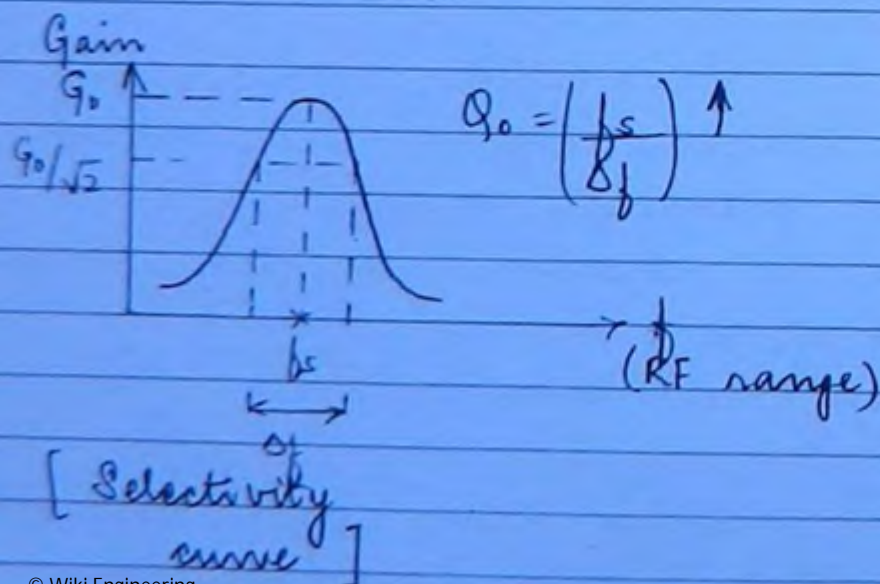 Gain
G₀
G₀/√2
Q₀ = (fs/Δf) ↑
fs
f
(RF range)
Δf
[ Selectivity
curve ]
© Wiki Engineering